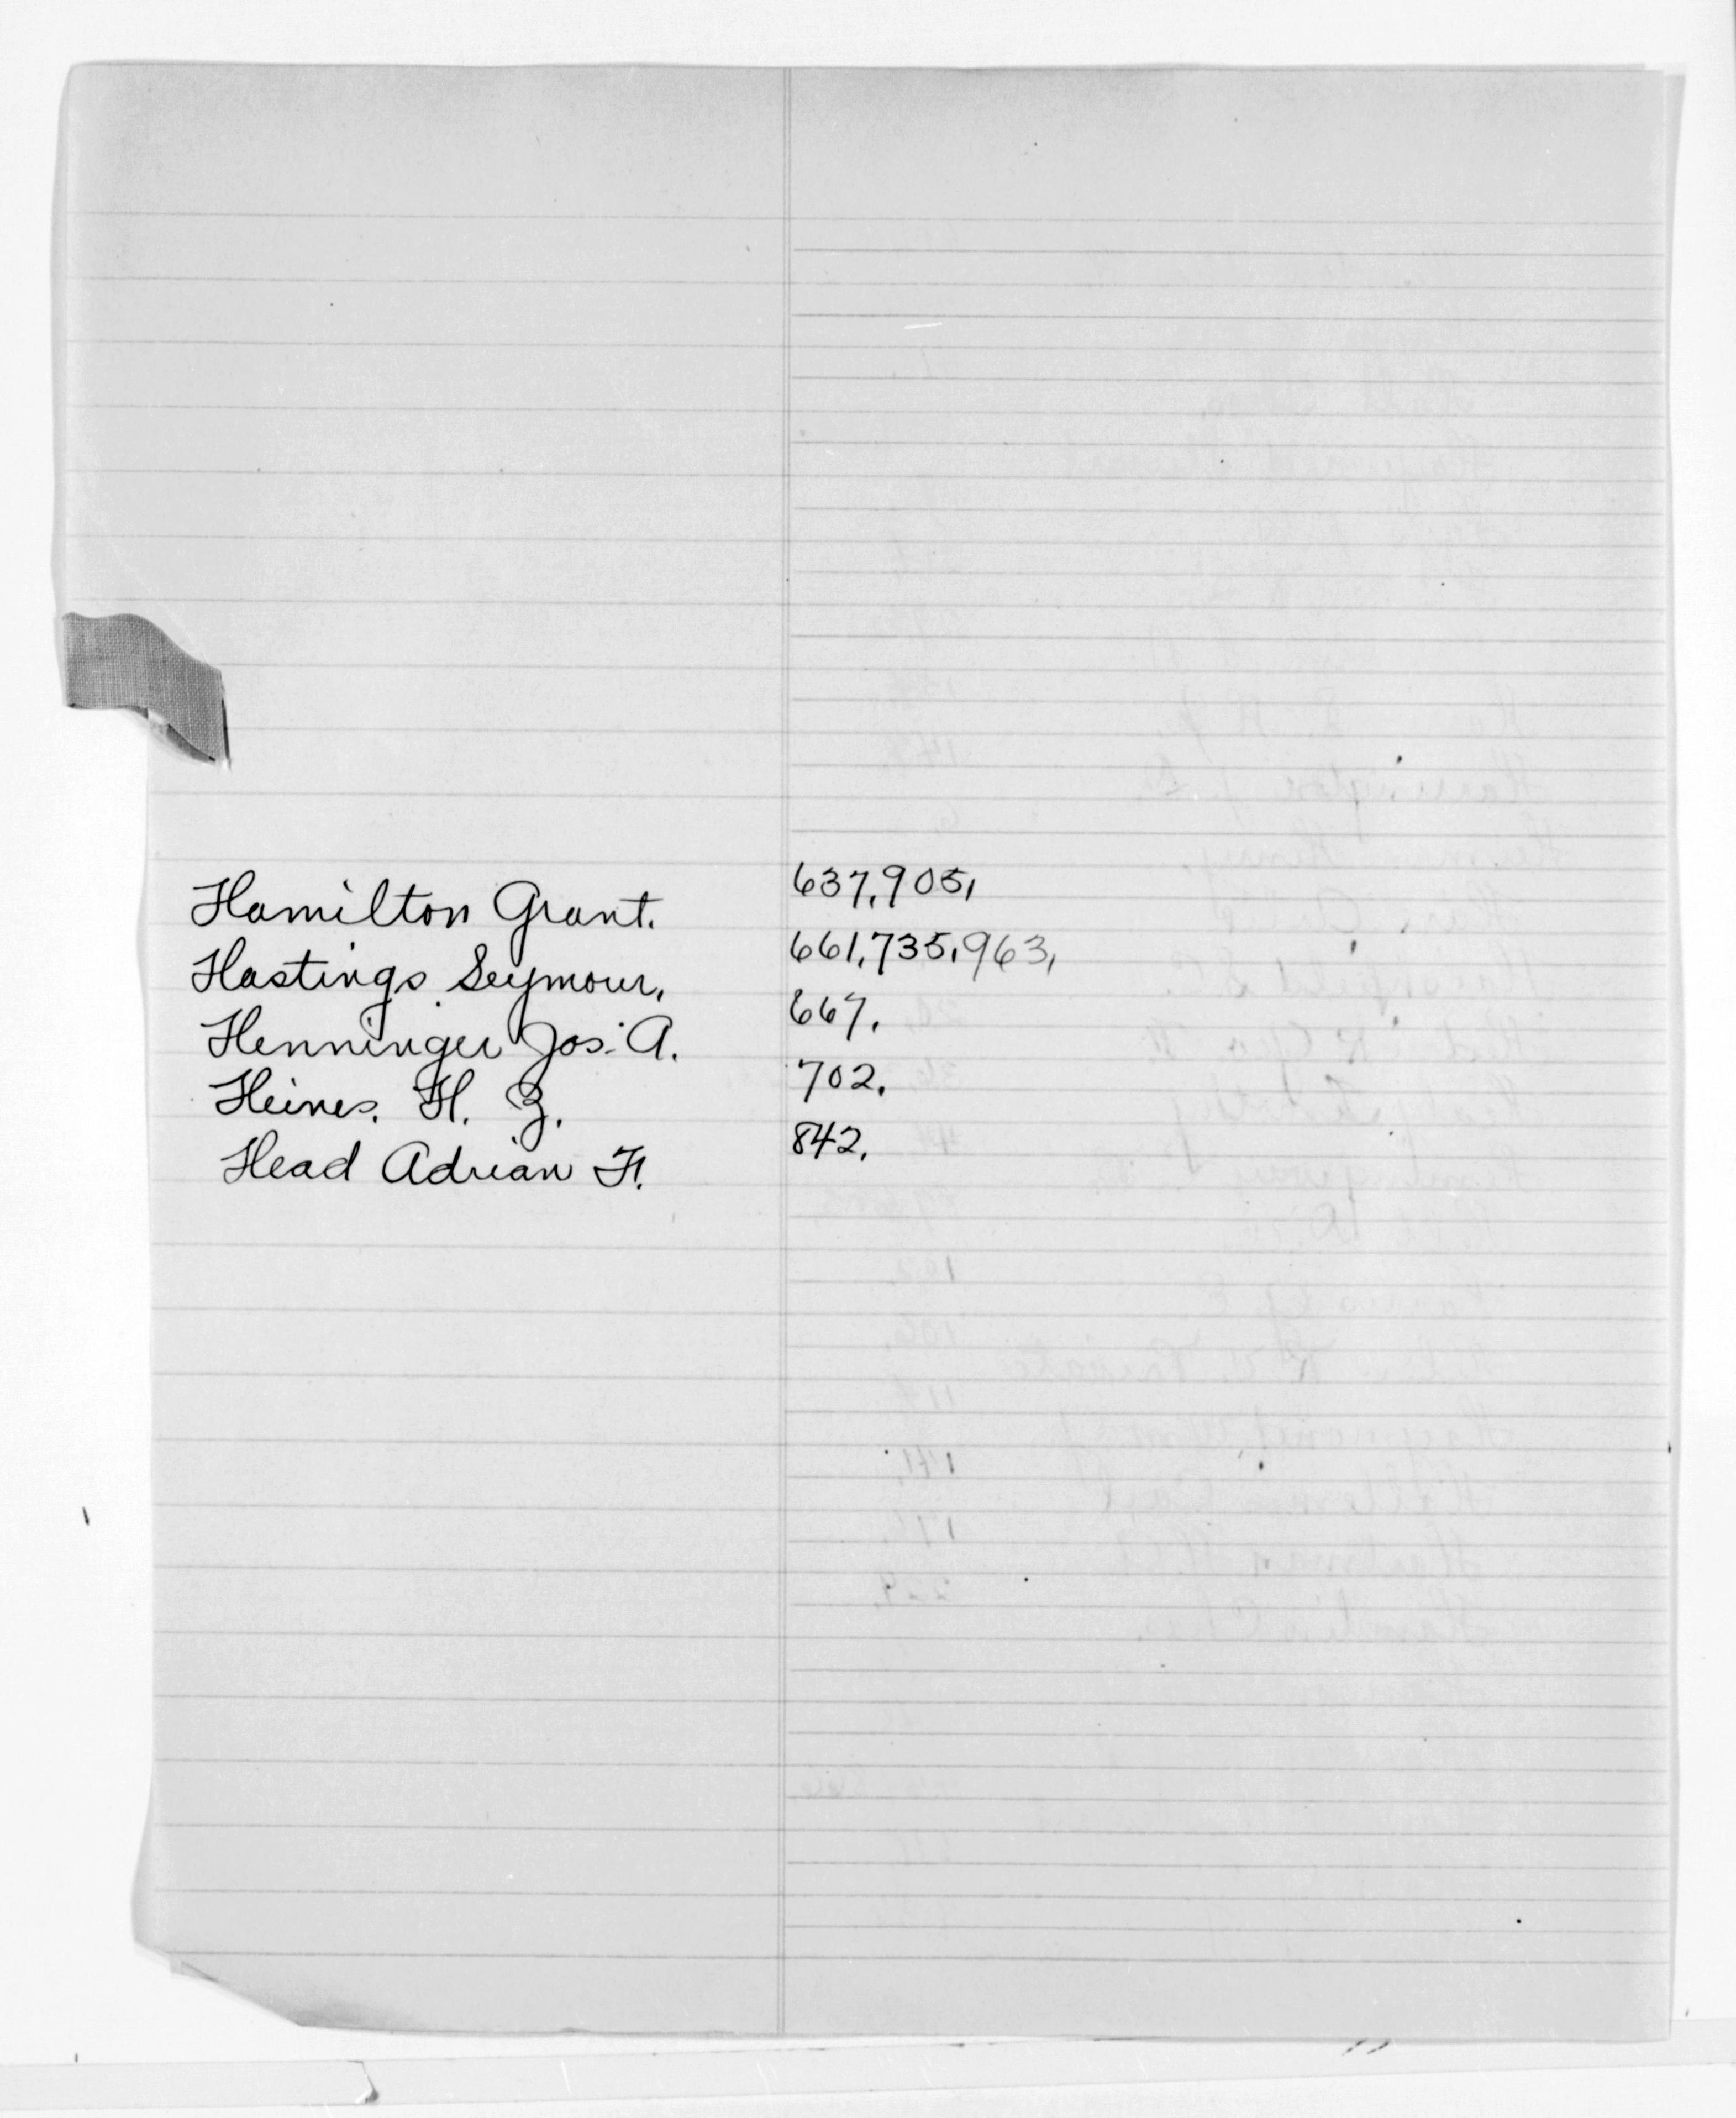 Hamilton Grant. 637, 905,
Hastings Seymour, 661, 735, 963,
Henninger Jos. A. 667.
Heines, H. Z. 702.
Head Adrian F. 842.